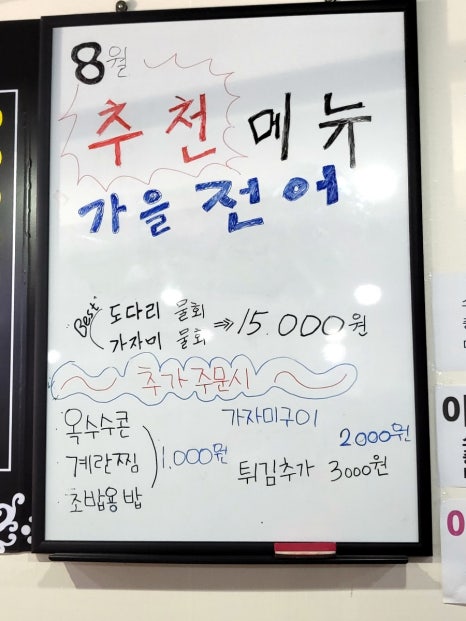 8월
추천 메뉴
가을 전어
Best
도다리 물회
가자미 물회 ⇒ 15.000원
추가주문시
옥수수콘
계란찜 1.000원
초밥용 밥
가자미구이
2000원
튀김추가 3000원